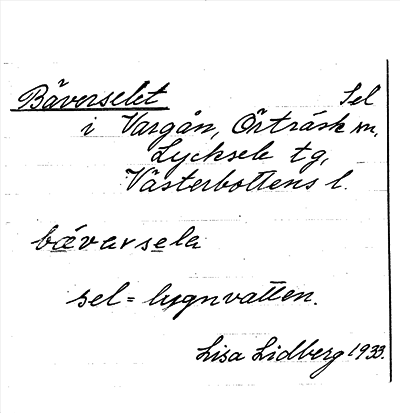 Bäverselet Sel
i Vargån, Örträsk sn,
Lycksele tg,
Västerbottens l.
bävarsela
sel = lugnvatten.
Lisa Lidberg 1933.